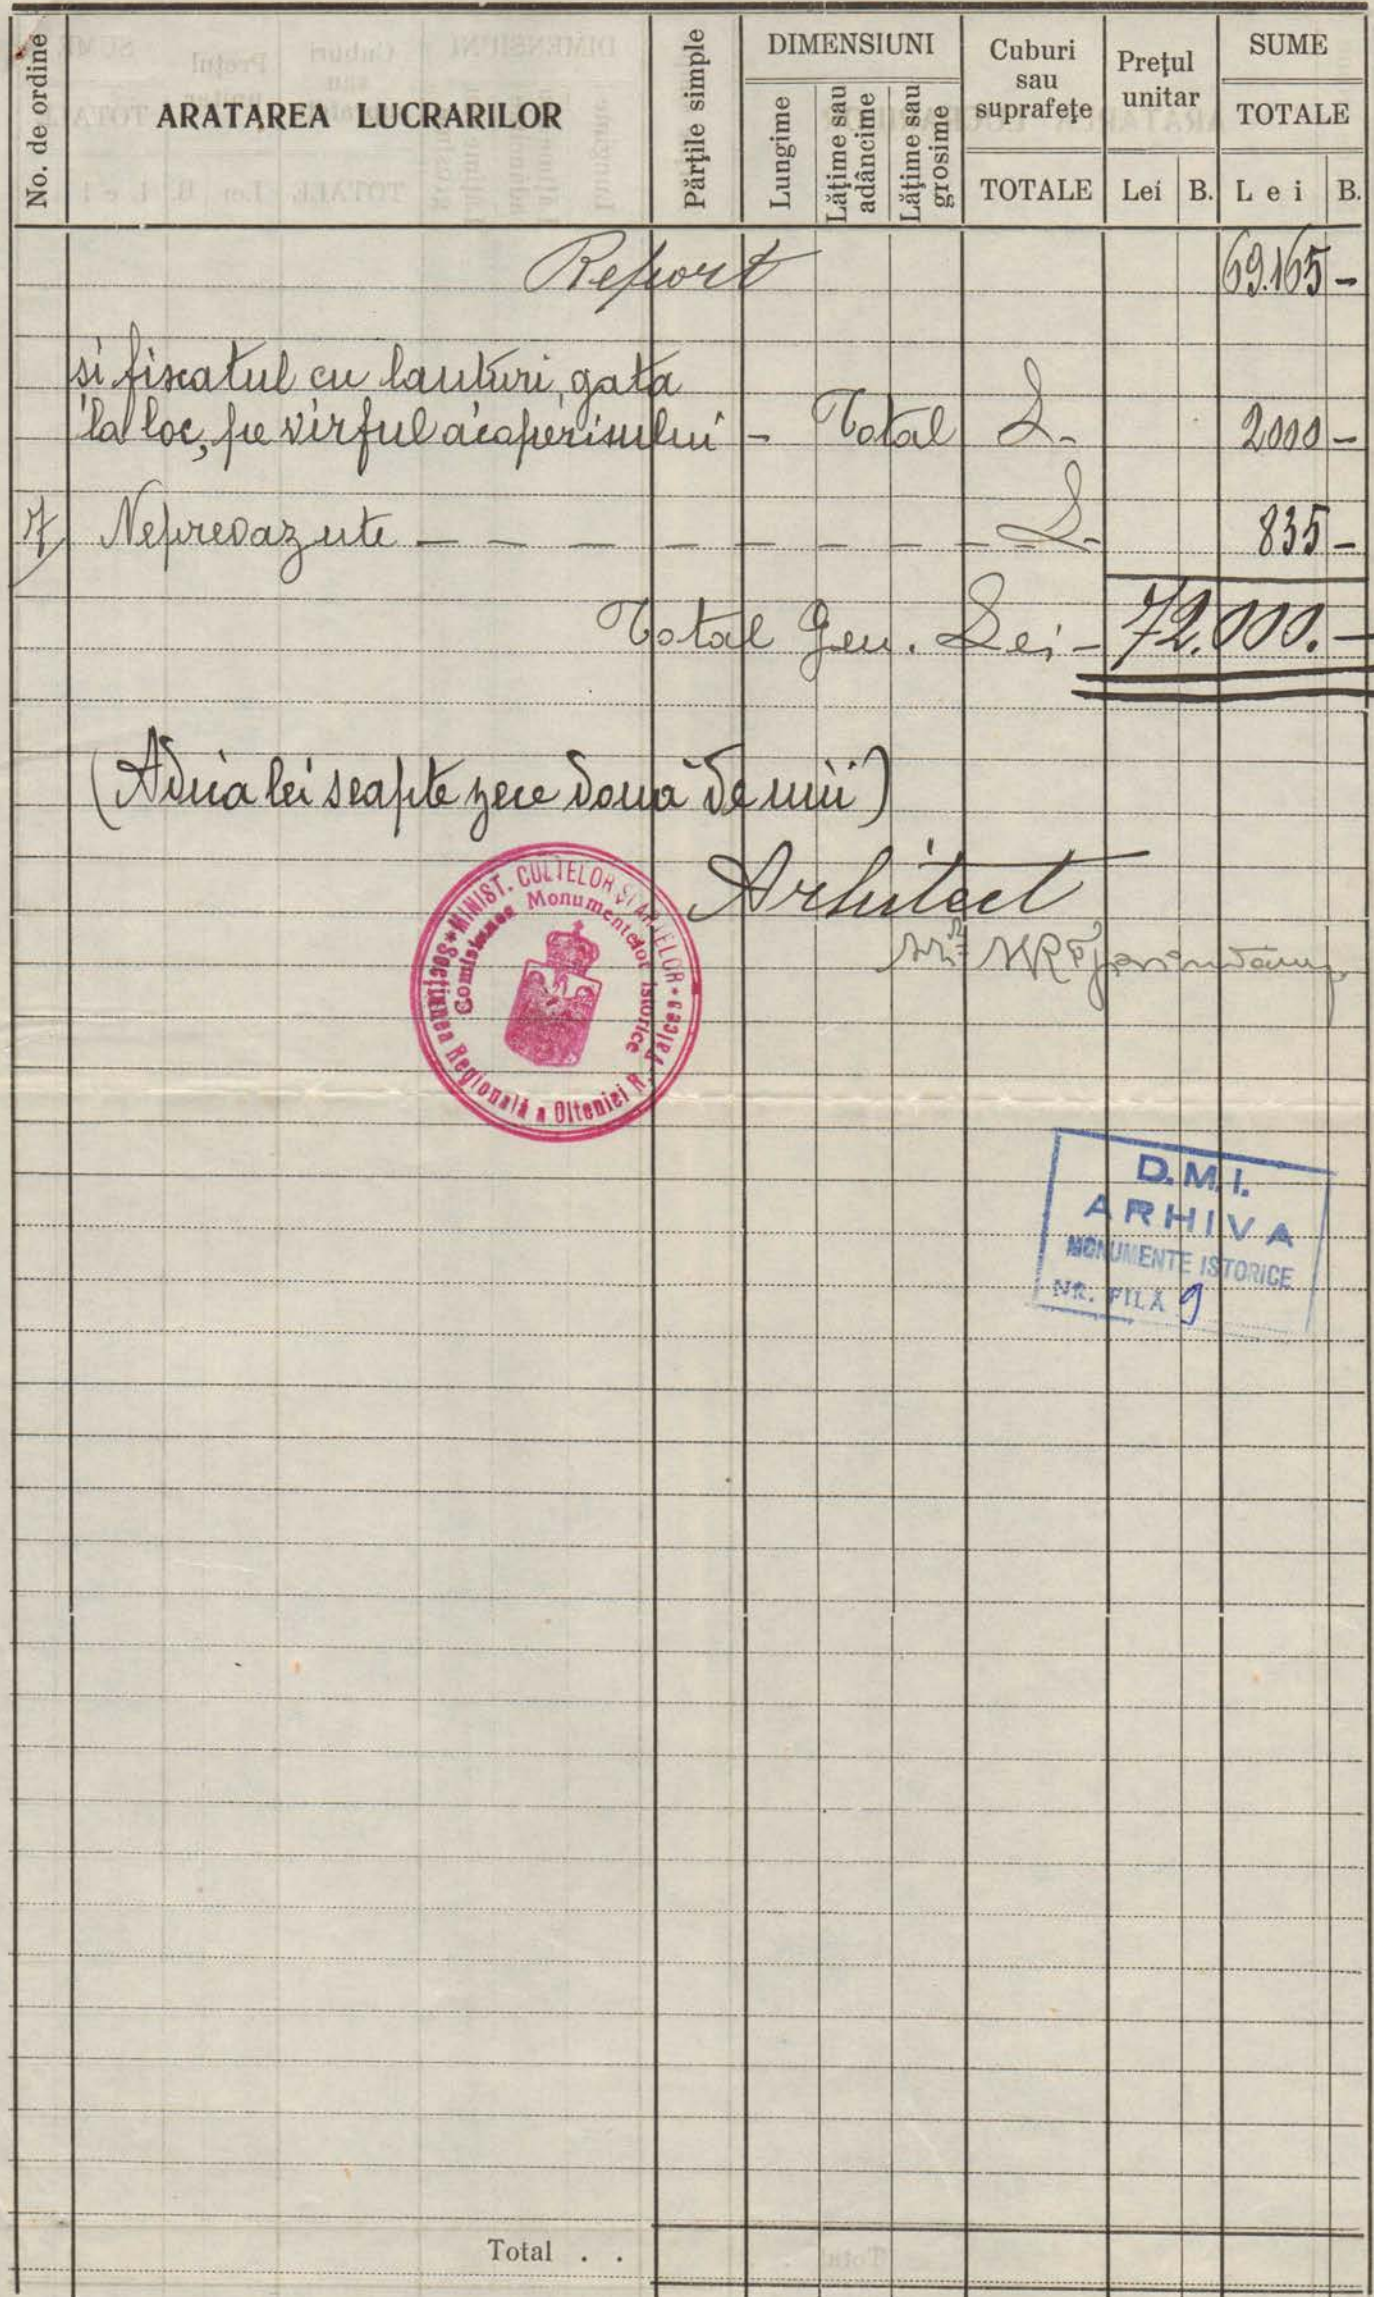 No. de ordine
ARATAREA LUCRARILOR
Părţile simple
DIMENSIUNI
Lungime
Lăţime sau adâncime
Lăţime sau grosime
Cuburi sau suprafeţe
TOTALE
Preţul unitar
Lei B.
SUME
TOTALE
Lei B.
Report 69.165 -
si fixatul cu lanturi, gata
la loc, pe virful acoperisului - Total L. 2000 -
7 Neprevazute - - - - - - - - - L. 835 -
Total Gen. Lei - 72.000. -
(Adica lei seapte zece două de mii)
Arhitect
MINIST. CULTELOR ŞI ARTELOR
Secţiunea Regională a Olteniei R. Vâlcea
Comisiunea Monumentelor Istorice
D.M.I.
ARHIVA
MONUMENTE ISTORICE
NR. FILĂ 9
Total . .